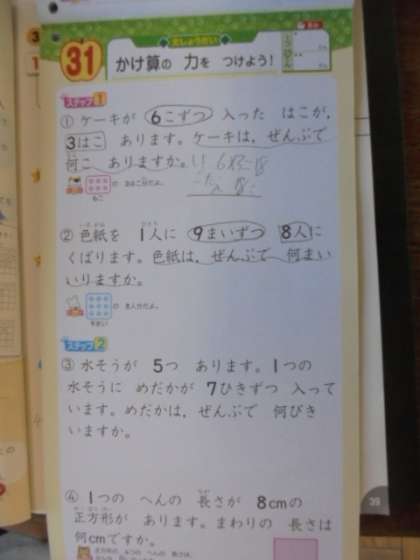 31
かけ算の 力を つけよう!
ステップ1
① ケーキが 6こずつ 入った はこが,
3はこ あります。ケーキは, ぜんぶで
何こ ありますか。
6×3=18
の 3はこ分だよ。
6こ
② 色紙を 1人に 9まいずつ 8人に
くばります。色紙は, ぜんぶで 何まい
いりますか。
の 8人分だよ。
9まい
ステップ2
③ 水そうが 5つ あります。1つの
水そうに めだかが 7ひきずつ 入って
います。めだかは, ぜんぶで 何びき
いますか。
39
④ 1つの へんの 長さが 8cmの
正方形が あります。まわりの 長さは
何cmですか。
正方形の, 4つの へんの 長さは,